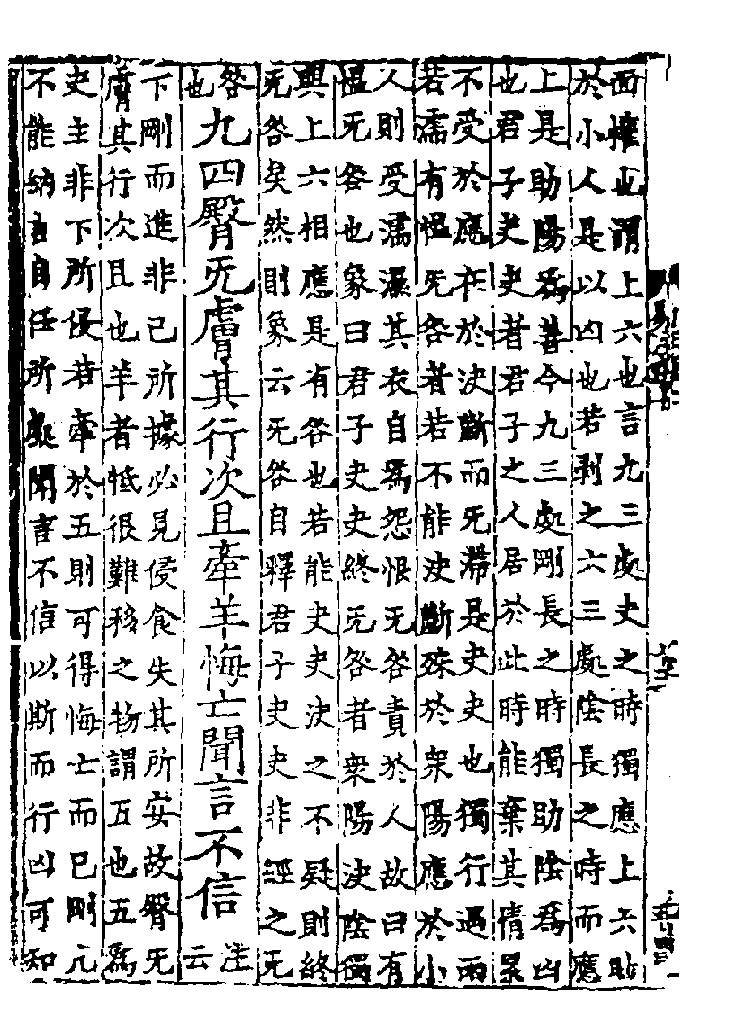 面權也謂上六也言九三處夬之時獨應上六助
於小人是以凶也若剥之六三處陰長之時而應
上是助陽爲善今九三處剛長之時獨助陰爲凶
也君子夬夬者君子之人居於此時能棄其情累
不受於應在於決斷而无滯是夬夬也獨行遇雨
若濡有慍无咎者若不能決斷殊於衆陽應於小
人則受濡濕其衣自爲怨恨无咎責於人故曰有
慍无咎也象曰君子夬夬終无咎者衆陽決陰獨
與上六相應是有咎也若能夬夬決之不疑則終
无咎矣然則象云无咎自釋君子夬夬非經之无
咎也九四臀无膚其行次且牽羊悔亡聞言不信注云
下剛而進非己所據必見侵食失其所安故臀无
膚其行次且也羊者抵很難移之物謂五也五爲
夬主非下所侵若牽於五則可得悔亡而已剛亢
不能納言自任所處聞言不信以斯而行凶可知